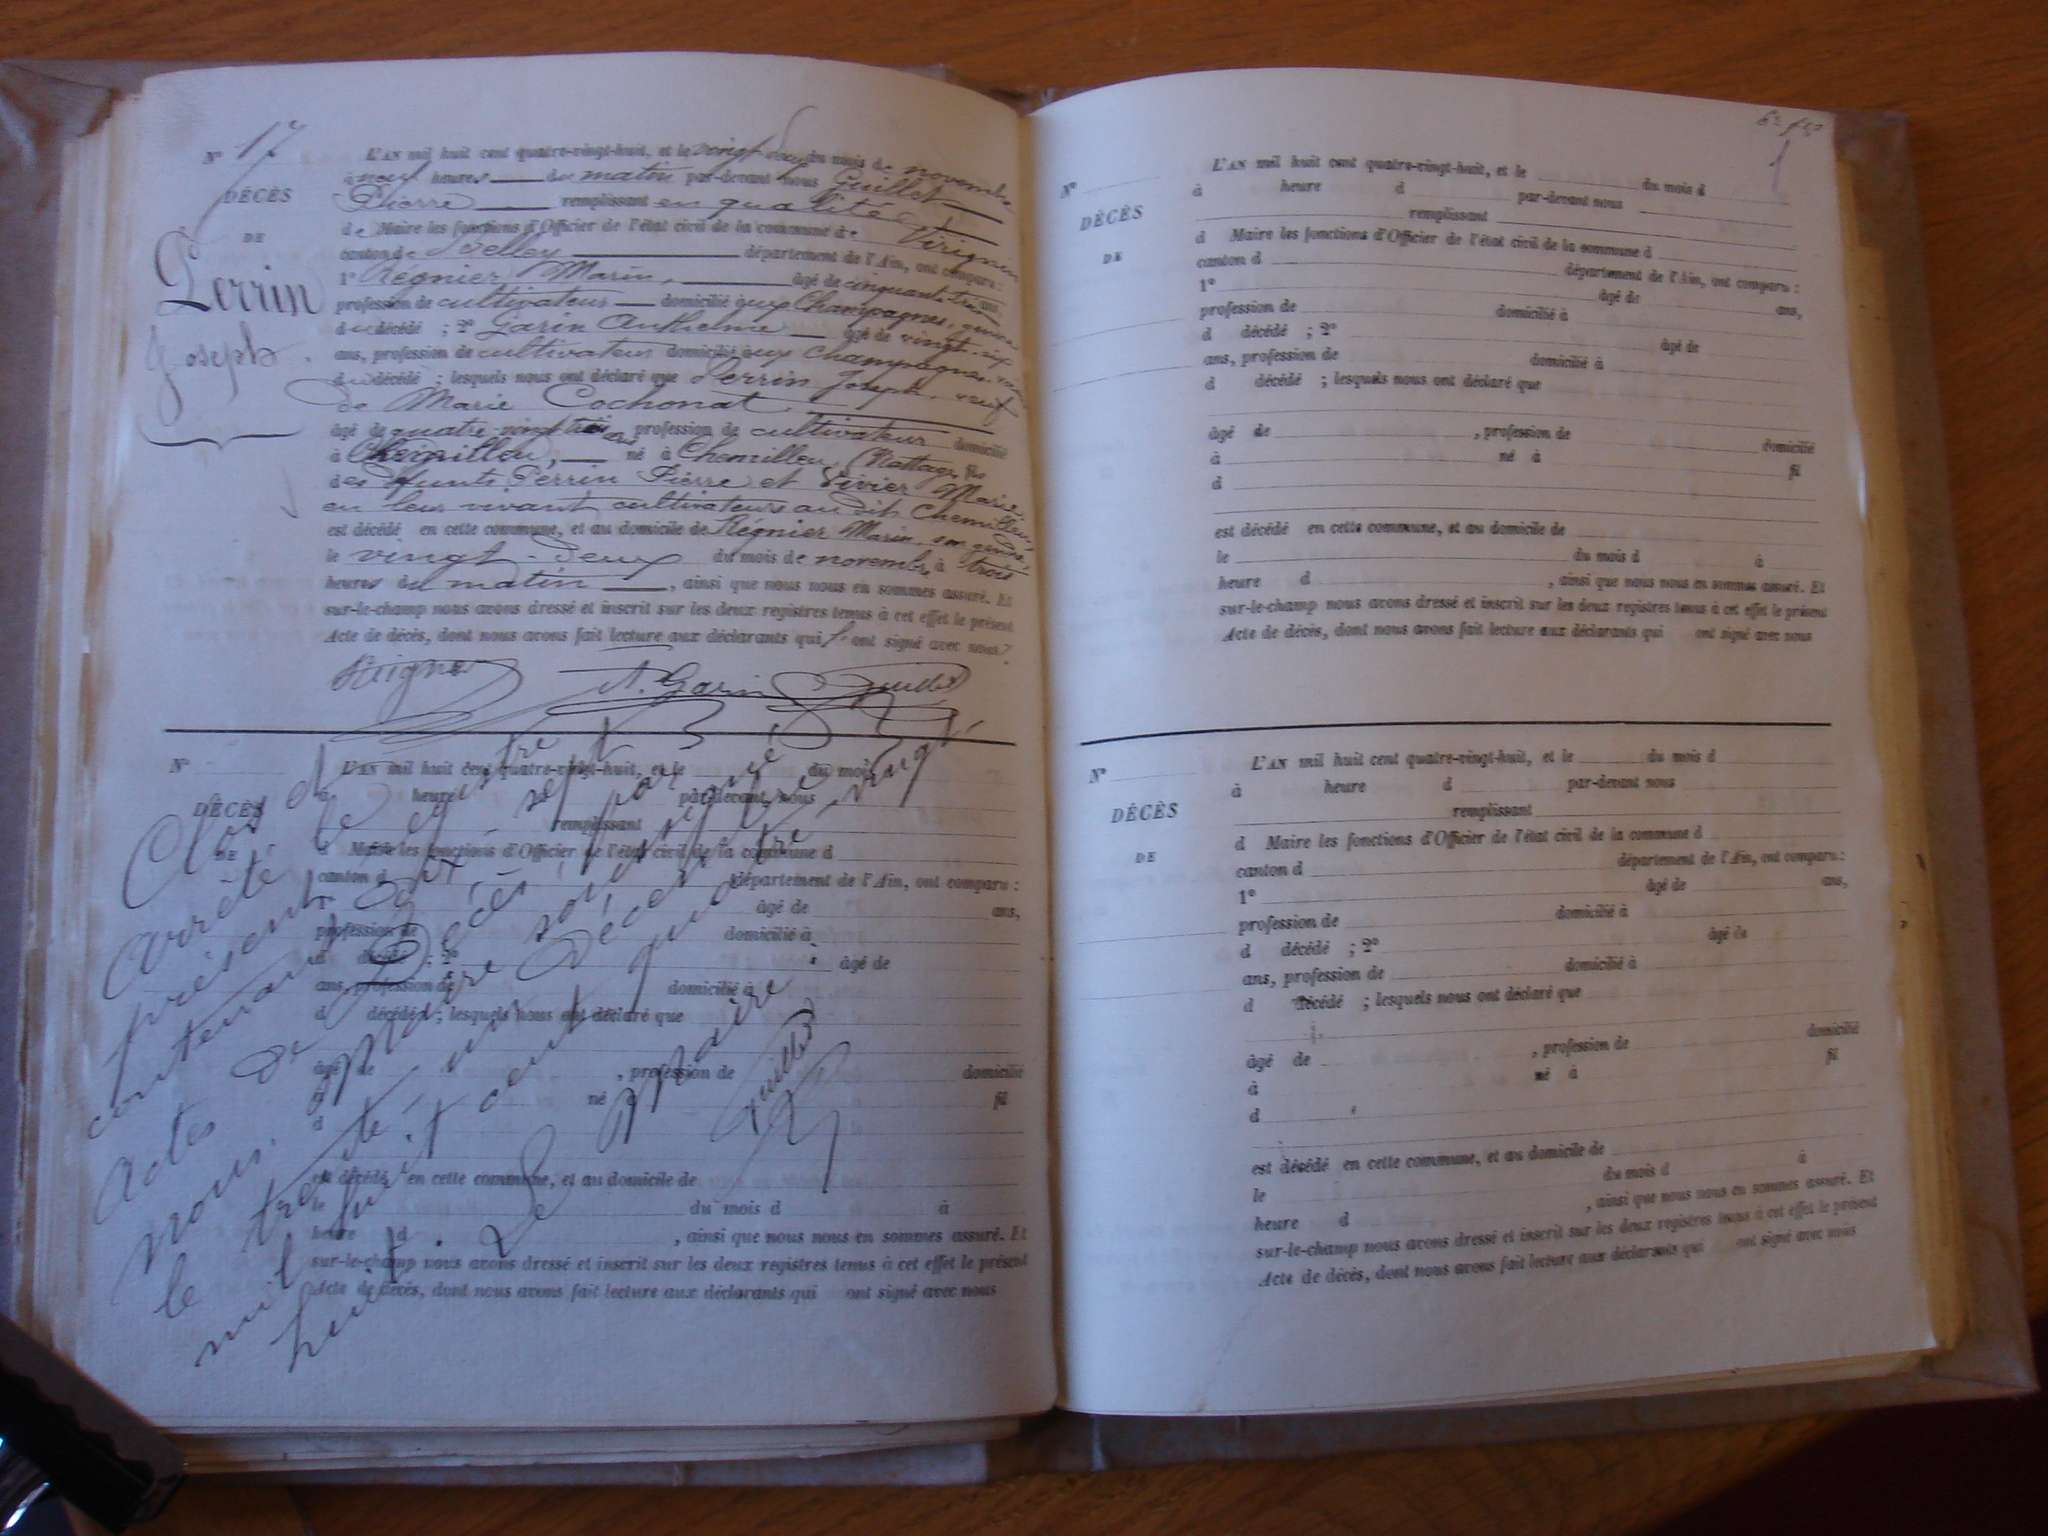 N° 17
DÉCÈS
DE
Perrin
Joseph.
L'AN mil huit cent quatre-vingt-huit, et le vingt deux du mois de novembre
à neuf heures du matin par-devant nous Guillet
Pierre remplissant en qualité
de Maire les fonctions d'Officier de l'état civil de la commune de Virignin
canton de Belley département de l'Ain, ont comparu :
1° Régnier Marin, âgé de cinquante trois ans,
profession de cultivateur domicilié aux Champagnes, gendre
du décédé ; 2° Garin Anthelme âgé de vingt-six
ans, profession de cultivateur domicilié aux Champagnes,
du décédé ; lesquels nous ont déclaré que Perrin Joseph, veuf
de Marie Cochonat,
âgé de quatre-vingt trois ans, profession de cultivateur domicilié
à Chemillieu, né à Chemillieu, (Nattages) fils
des défunts Perrin Pierre et Vivier Marie,
en leur vivant cultivateurs au dit Chemillieu,
est décédé en cette commune, et au domicile de Régnier Marin, son gendre,
le vingt-deux du mois de novembre à trois
heures du matin, ainsi que nous nous en sommes assuré. Et
sur-le-champ nous avons dressé et inscrit sur les deux registres tenus à cet effet le présent
Acte de décès, dont nous avons fait lecture aux déclarants qui l' ont signé avec nous.
A. Garin Guillet
N°
DÉCÈS
DE
L'AN mil huit cent quatre-vingt-huit, et le du mois
à heure par-devant nous
remplissant
d Maire les fonctions d'Officier de l'état civil de la commune d
canton d département de l'Ain, ont comparu :
1° âgé de ans,
profession de domicilié à
d décédé ; 2° âgé de
ans, profession de domicilié à
d décédé ; lesquels nous ont déclaré que
âgé de , profession de domicilié
à né à fil
d
est décédé en cette commune, et au domicile de
le du mois d à
heure d , ainsi que nous nous en sommes assuré. Et
sur-le-champ nous avons dressé et inscrit sur les deux registres tenus à cet effet le présent
Acte de décès, dont nous avons fait lecture aux déclarants qui ont signé avec nous
Clos et
arrêté le
présent registre
contenant dix sept
Actes de Décès, par
nous, maire soussigné
le trente-un Décembre
mil huit cent quatre-vingt-
huit. Le Maire
Guillet
N°
DÉCÈS
DE
L'AN mil huit cent quatre-vingt-huit, et le du mois d
à heure d par-devant nous
remplissant
d Maire les fonctions d'Officier de l'état civil de la commune d
canton d département de l'Ain, ont comparu :
1° âgé de ans,
profession de domicilié à
d décédé ; 2° âgé de
ans, profession de domicilié à
d décédé ; lesquels nous ont déclaré que
âgé de , profession de domicilié
à né à fil
d
est décédé en cette commune, et au domicile de
le du mois d à
heure d , ainsi que nous nous en sommes assuré. Et
sur-le-champ nous avons dressé et inscrit sur les deux registres tenus à cet effet le présent
Acte de décès, dont nous avons fait lecture aux déclarants qui ont signé avec nous
N°
DÉCÈS
DE
L'AN mil huit cent quatre-vingt-huit, et le du mois d
à heure d par-devant nous
remplissant
d Maire les fonctions d'Officier de l'état civil de la commune d
canton d département de l'Ain, ont comparu :
1° âgé de ans,
profession de domicilié à
d décédé ; 2° âgé de
ans, profession de domicilié à
d décédé ; lesquels nous ont déclaré que
âgé de , profession de domicilié
à né à fil
d
est décédé en cette commune, et au domicile de
le du mois d à
heure d , ainsi que nous nous en sommes assuré. Et
sur-le-champ nous avons dressé et inscrit sur les deux registres tenus à cet effet le présent
Acte de décès, dont nous avons fait lecture aux déclarants qui ont signé avec nous